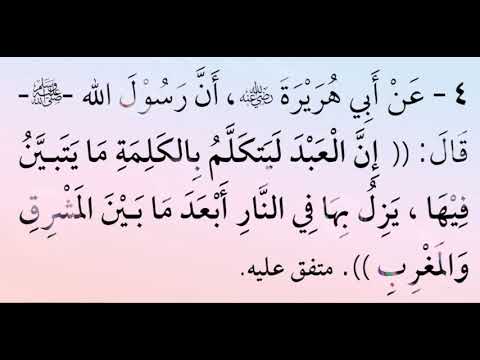 ٤ - عَنْ أَبِي هُرَيْرَةَ رضي الله عنه، أَنَّ رَسُوْلَ الله -ﷺ-
قَالَ: (( إِنَّ الْعَبْدَ لَيَتَكَلَّمُ بِالكَلِمَةِ مَا يَتَبيَّنُ
فِيْهَا ، يَزِلُّ بِهَا فِي النَّارِ أَبْعَدَ مَا بَيْنَ المَشْرِقِ
وَالمَغْرِبِ )). متفق عليه.